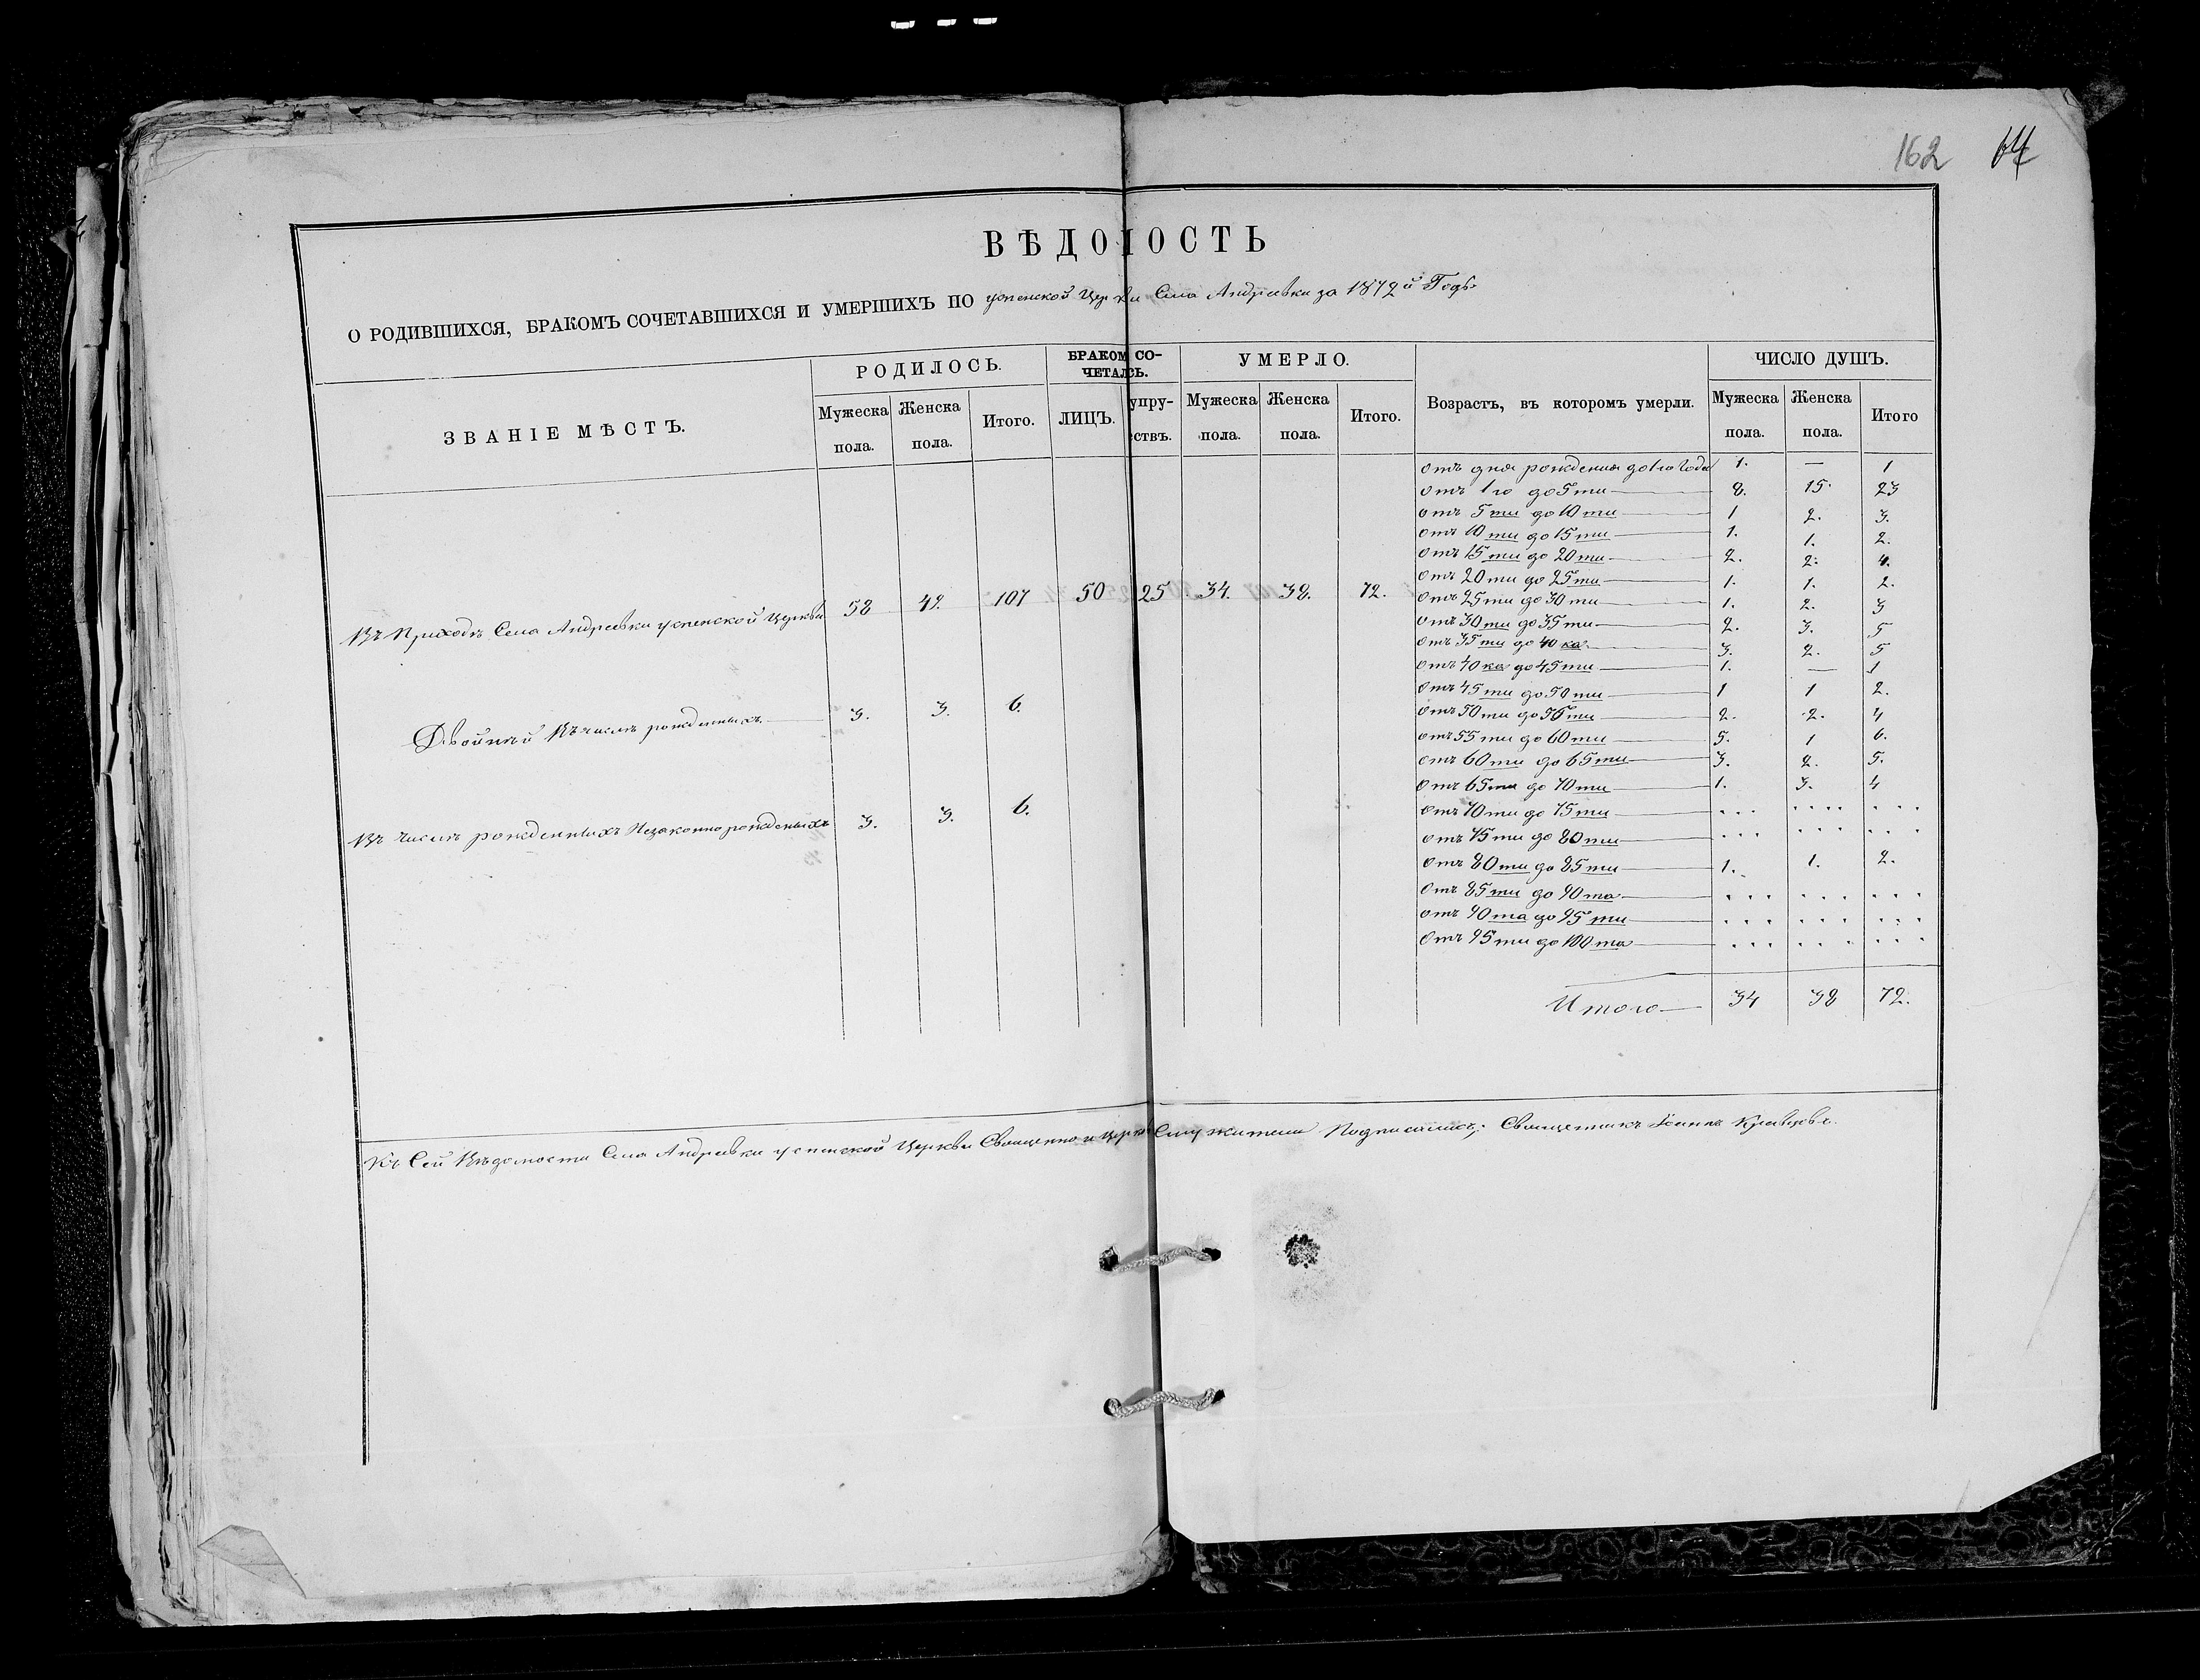 162 64
ВѢДОМОСТЬ
О РОДИВШИХСЯ, БРАКОМЪ СОЧЕТАВШИХСЯ И УМЕРШИХЪ ПО успенской Церкви Села Андреевки за 1872й Годъ
ЗВАНІЕ МѢСТЪ. РОДИЛОСЬ. БРАКОМ СО- УМЕРЛО. Возрастъ, въ которомъ умерли. ЧИСЛО ДУШЪ.
ЧЕТАЛСЬ.
Мужеска Женска Итого. ЛИЦЪ. упру- Мужеска Женска Итого. Мужеска Женска Итого
пола. пола. ствъ. пола. пола. пола. пола.
Въ Приходѣ Села Андреевки успенской Церкви 58 49. 107 50 25 34. 38. 72.
Двойней Въ числѣ рожденныхъ 3. 3. 6.
Въ Числѣ рожденныхъ Незаконнорожденыхъ 3. 3. 6.
отъ дня рожденія до 1го Года 1. — 1
отъ 1го до 5ти 8. 15. 23
отъ 5ти до 10ти 1 2. 3.
отъ 10ти до 15ти 1. 1. 2.
отъ 15ти до 20ти 2. 2. 4.
отъ 20ти до 25ти 1. 1. 2.
отъ 25ти до 30ти 1. 2. 3
отъ 30ти до 35ти 2. 3. 5
отъ 35ти до 40ка 3. 2. 5
отъ 40ка до 45ти 1. — 1
отъ 45ти до 50ти 1 1 2.
отъ 50ти до 55ти 2. 2. 4
отъ 55ти до 60ти 5. 1 6.
отъ 60ти до 65ти 3. 2. 5.
отъ 65ти до 70ти 1. 3. 4
отъ 70ти до 75ти ... .... ...
отъ 75ти до 80ти ... ... ...
отъ 80ти до 85ти 1. 1. 2.
отъ 85ти до 90та ... ... ...
отъ 90та до 95ти ... ... ...
отъ 95ти до 100та ... ... ...
Итого 34 38 72.
Къ Сей Вѣдомости Села Андреевки успенской Церкви Священно и церко Служители Подписались: Священникъ Іоаннъ Кравцовъ.